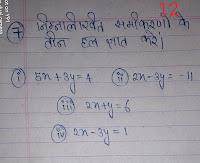 12
⑦ निम्नलिखित समीकरणों के
तीन हल ज्ञात करें।
(i) 5x+3y=4 (ii) 2x-3y = -11
(iii) 2x+y=6
(iv) 2x-3y=1